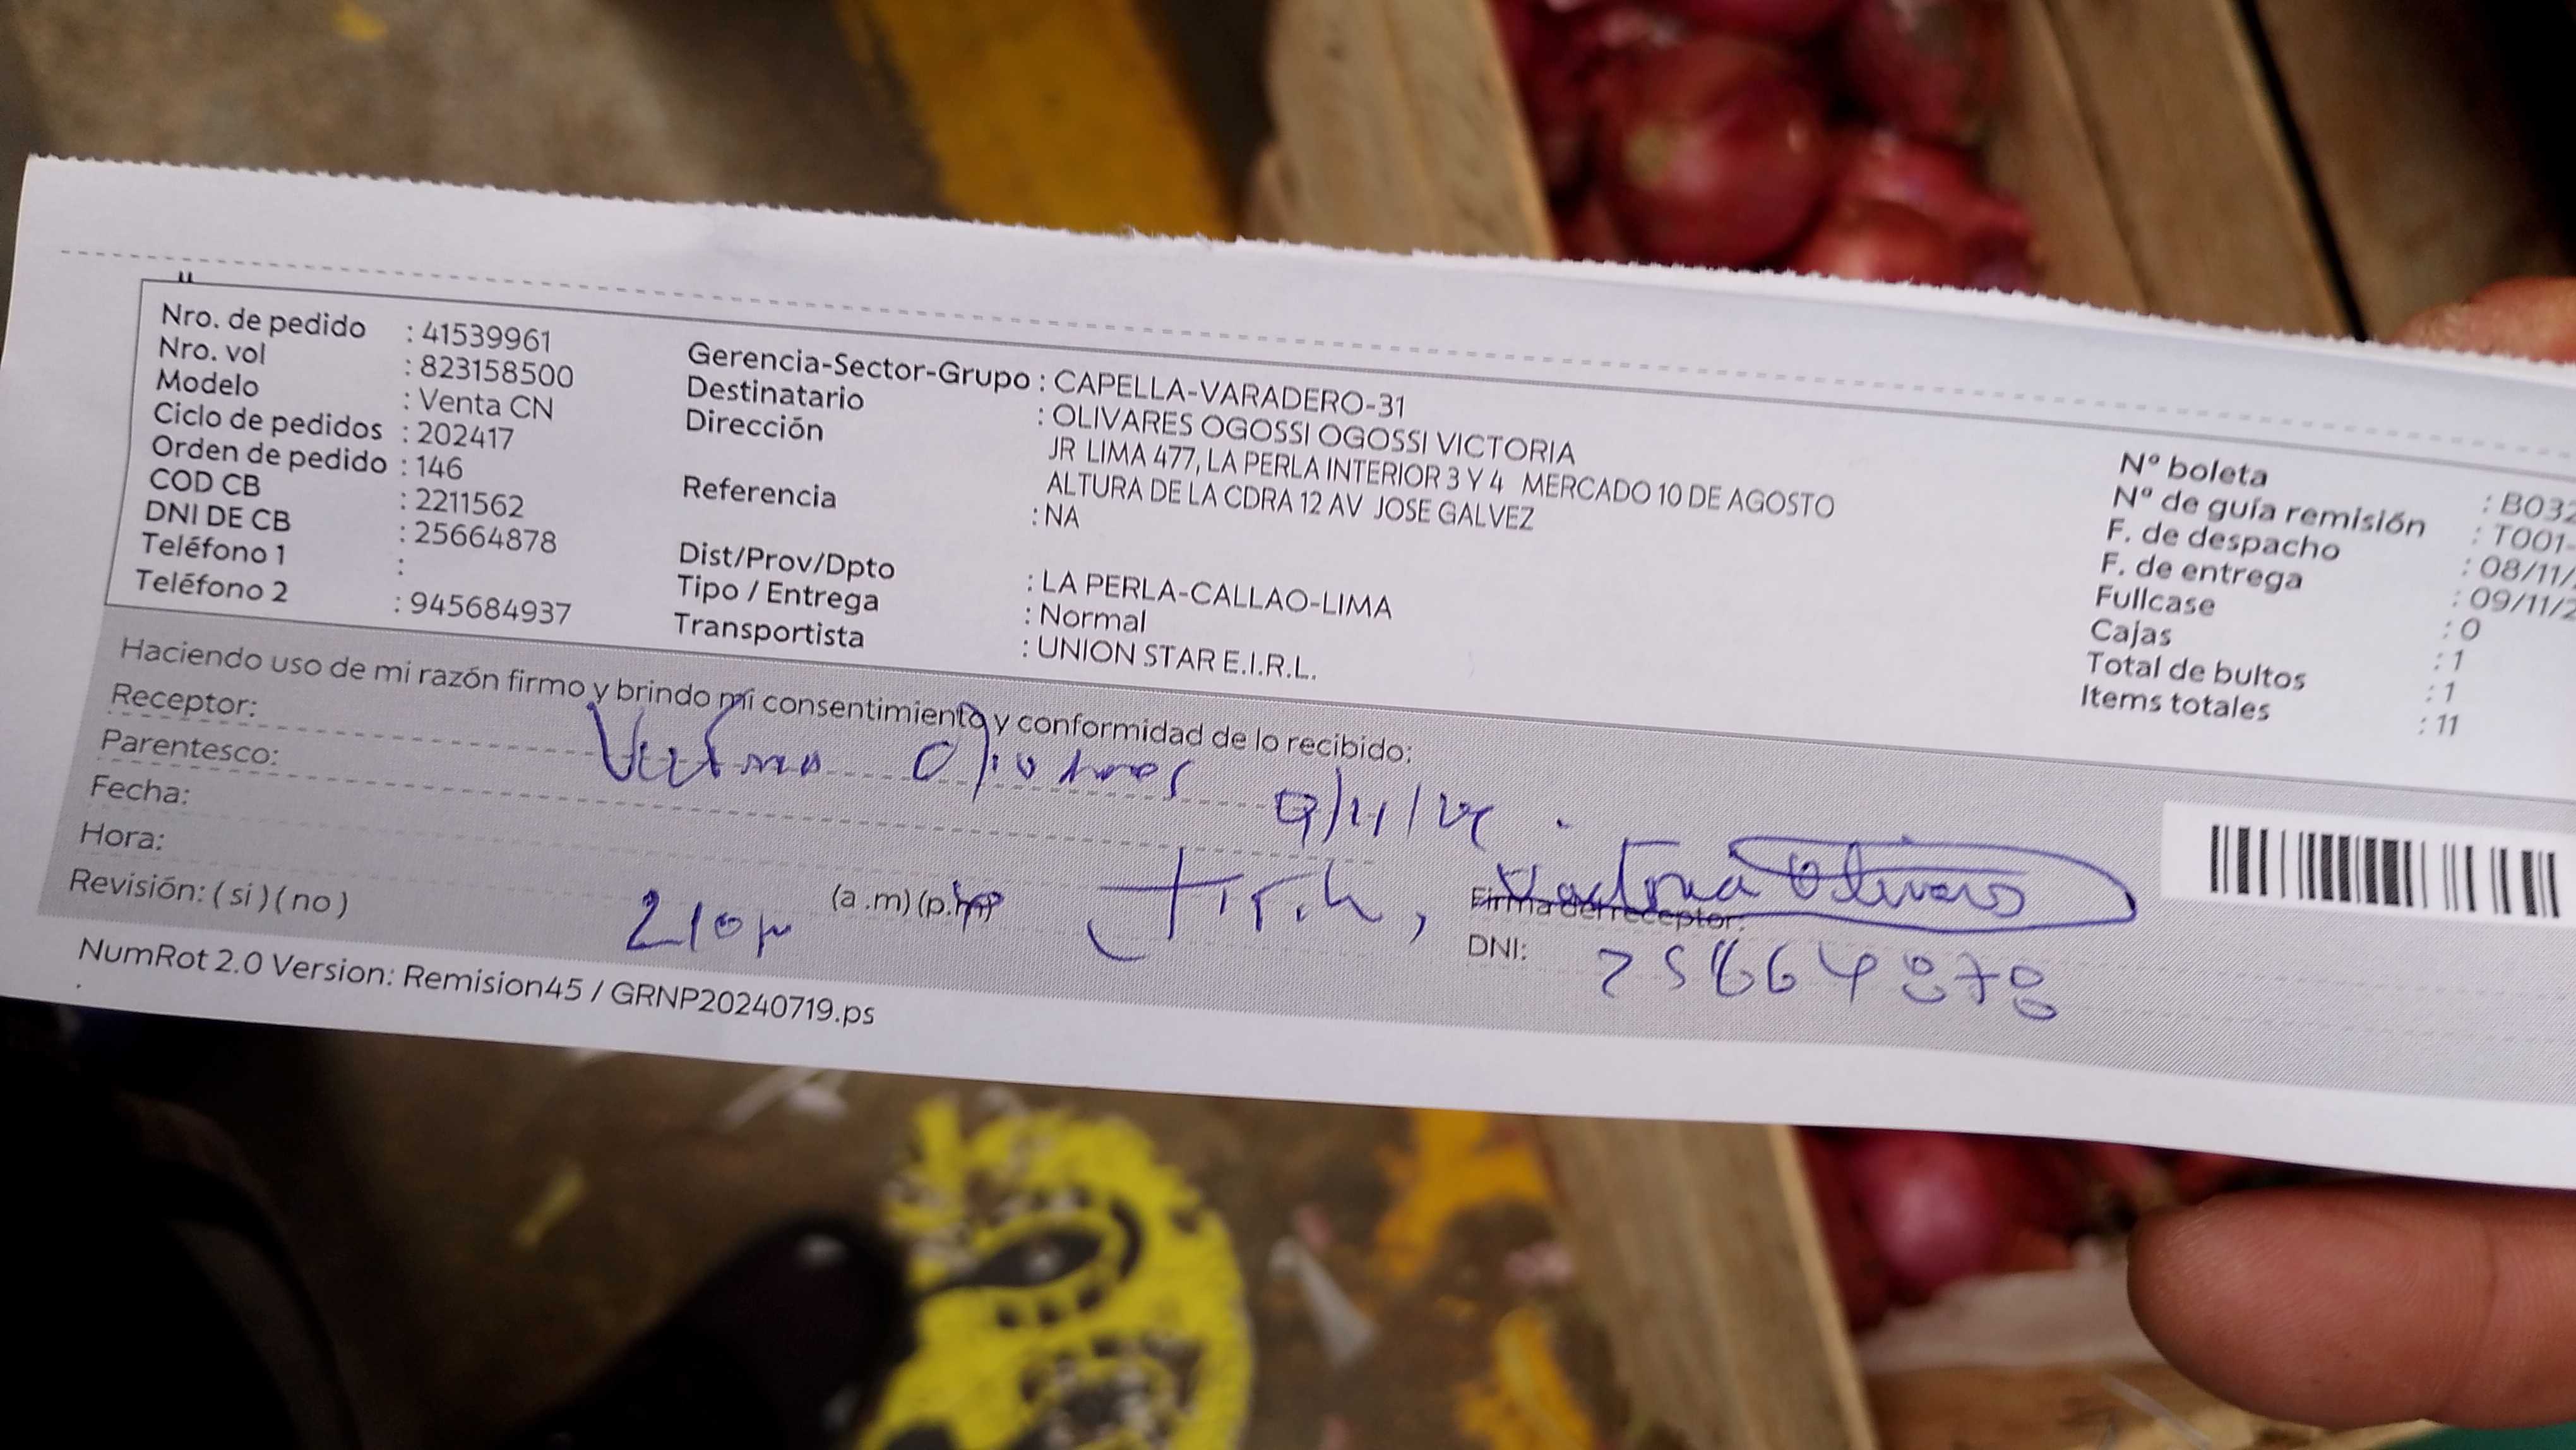 Nro. de pedido : 41539961
Nro. vol : 823158500
Modelo : Venta CN
Ciclo de pedidos : 202417
Orden de pedido : 146
COD CB : 2211562
DNI DE CB : 25664878
Teléfono 1 :
Teléfono 2 : 945684937
Gerencia-Sector-Grupo : CAPELLA-VARADERO-31
Destinatario : OLIVARES OGOSSI OGOSSI VICTORIA
Dirección JR LIMA 477, LA PERLA INTERIOR 3 Y 4 MERCADO 10 DE AGOSTO
ALTURA DE LA CDRA 12 AV JOSE GALVEZ
Referencia : NA
Dist/Prov/Dpto : LA PERLA-CALLAO-LIMA
Tipo / Entrega : Normal
Transportista : UNION STAR E.I.R.L.
Nº boleta : B032
Nº de guía remisión : T001-
F. de despacho : 08/11/
F. de entrega : 09/11/2
Fullcase : 0
Cajas : 1
Total de bultos : 1
Items totales : 11
Haciendo uso de mi razón firmo y brindo mi consentimiento y conformidad de lo recibido:
Receptor:
Parentesco:
Fecha: 9/11/24
Hora: (a.m) (p.m)
Revisión: ( si ) ( no )
Firma del receptor: Victoria Olivares
DNI: 25664878
NumRot 2.0 Version: Remision45 / GRNP20240719.ps